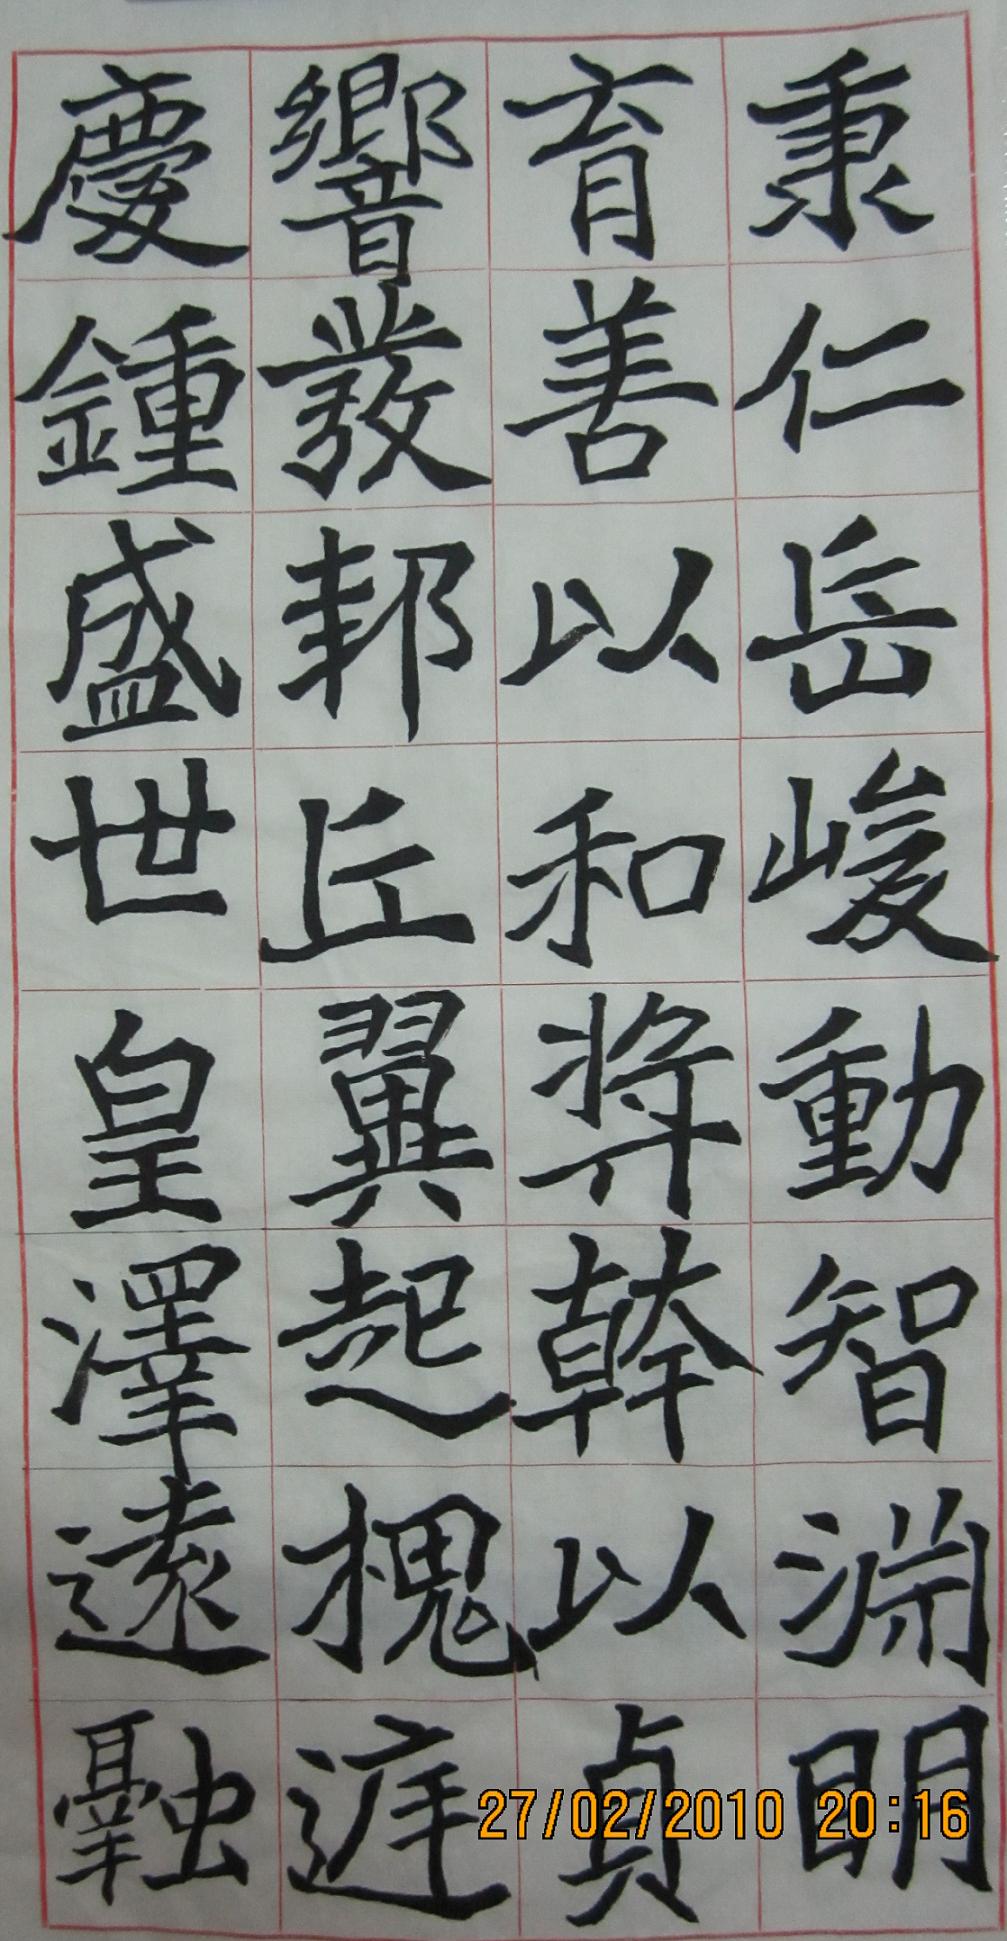 秉仁岳峻動智淵明
育善以和奬幹以貞
響發邦丘翼起槐庭
慶鍾盛世皇澤遠融
27/02/2010 20:16